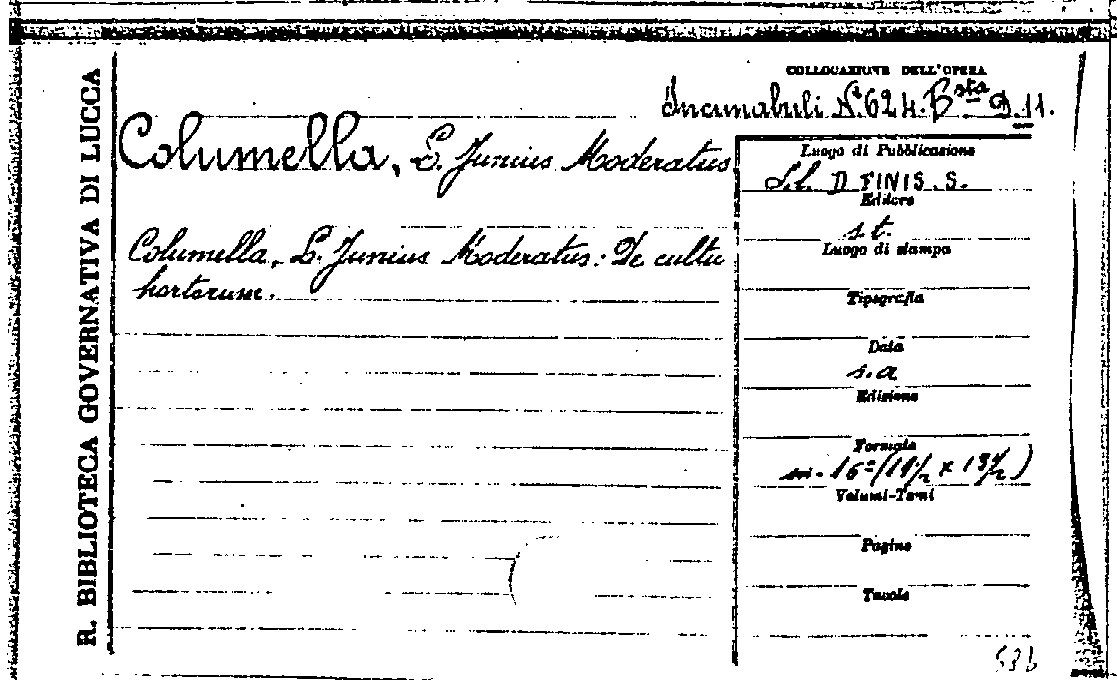 R. BIBLIOTECA GOVERNATIVA DI LUCCA
COLLOCAZIONE DELL'OPERA
Incunabuli N. 624. Bsta 9.11.
Columella, L. Junius Moderatus
Columella, L. Junius Moderatus: De cultu
hortorum.
Luogo di Pubblicazione
S.l. D FINIS. S.
Editore
s.t.
Luogo di stampa
Tipografia
Data
s.a
Edizione
Formato
in-16° (19 1/2 x 13 1/2)
Volumi-Tomi
Pagine
Tavole